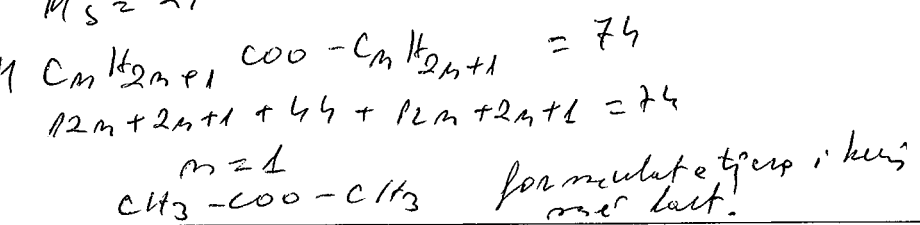 M CnH2n+1 COO - CnH2n+1 = 74
12n + 2n+1 + 44 + 12n + 2n+1 = 74
n = 1
CH3 - COO - CH3 formulat e tjera i keni
më lart.